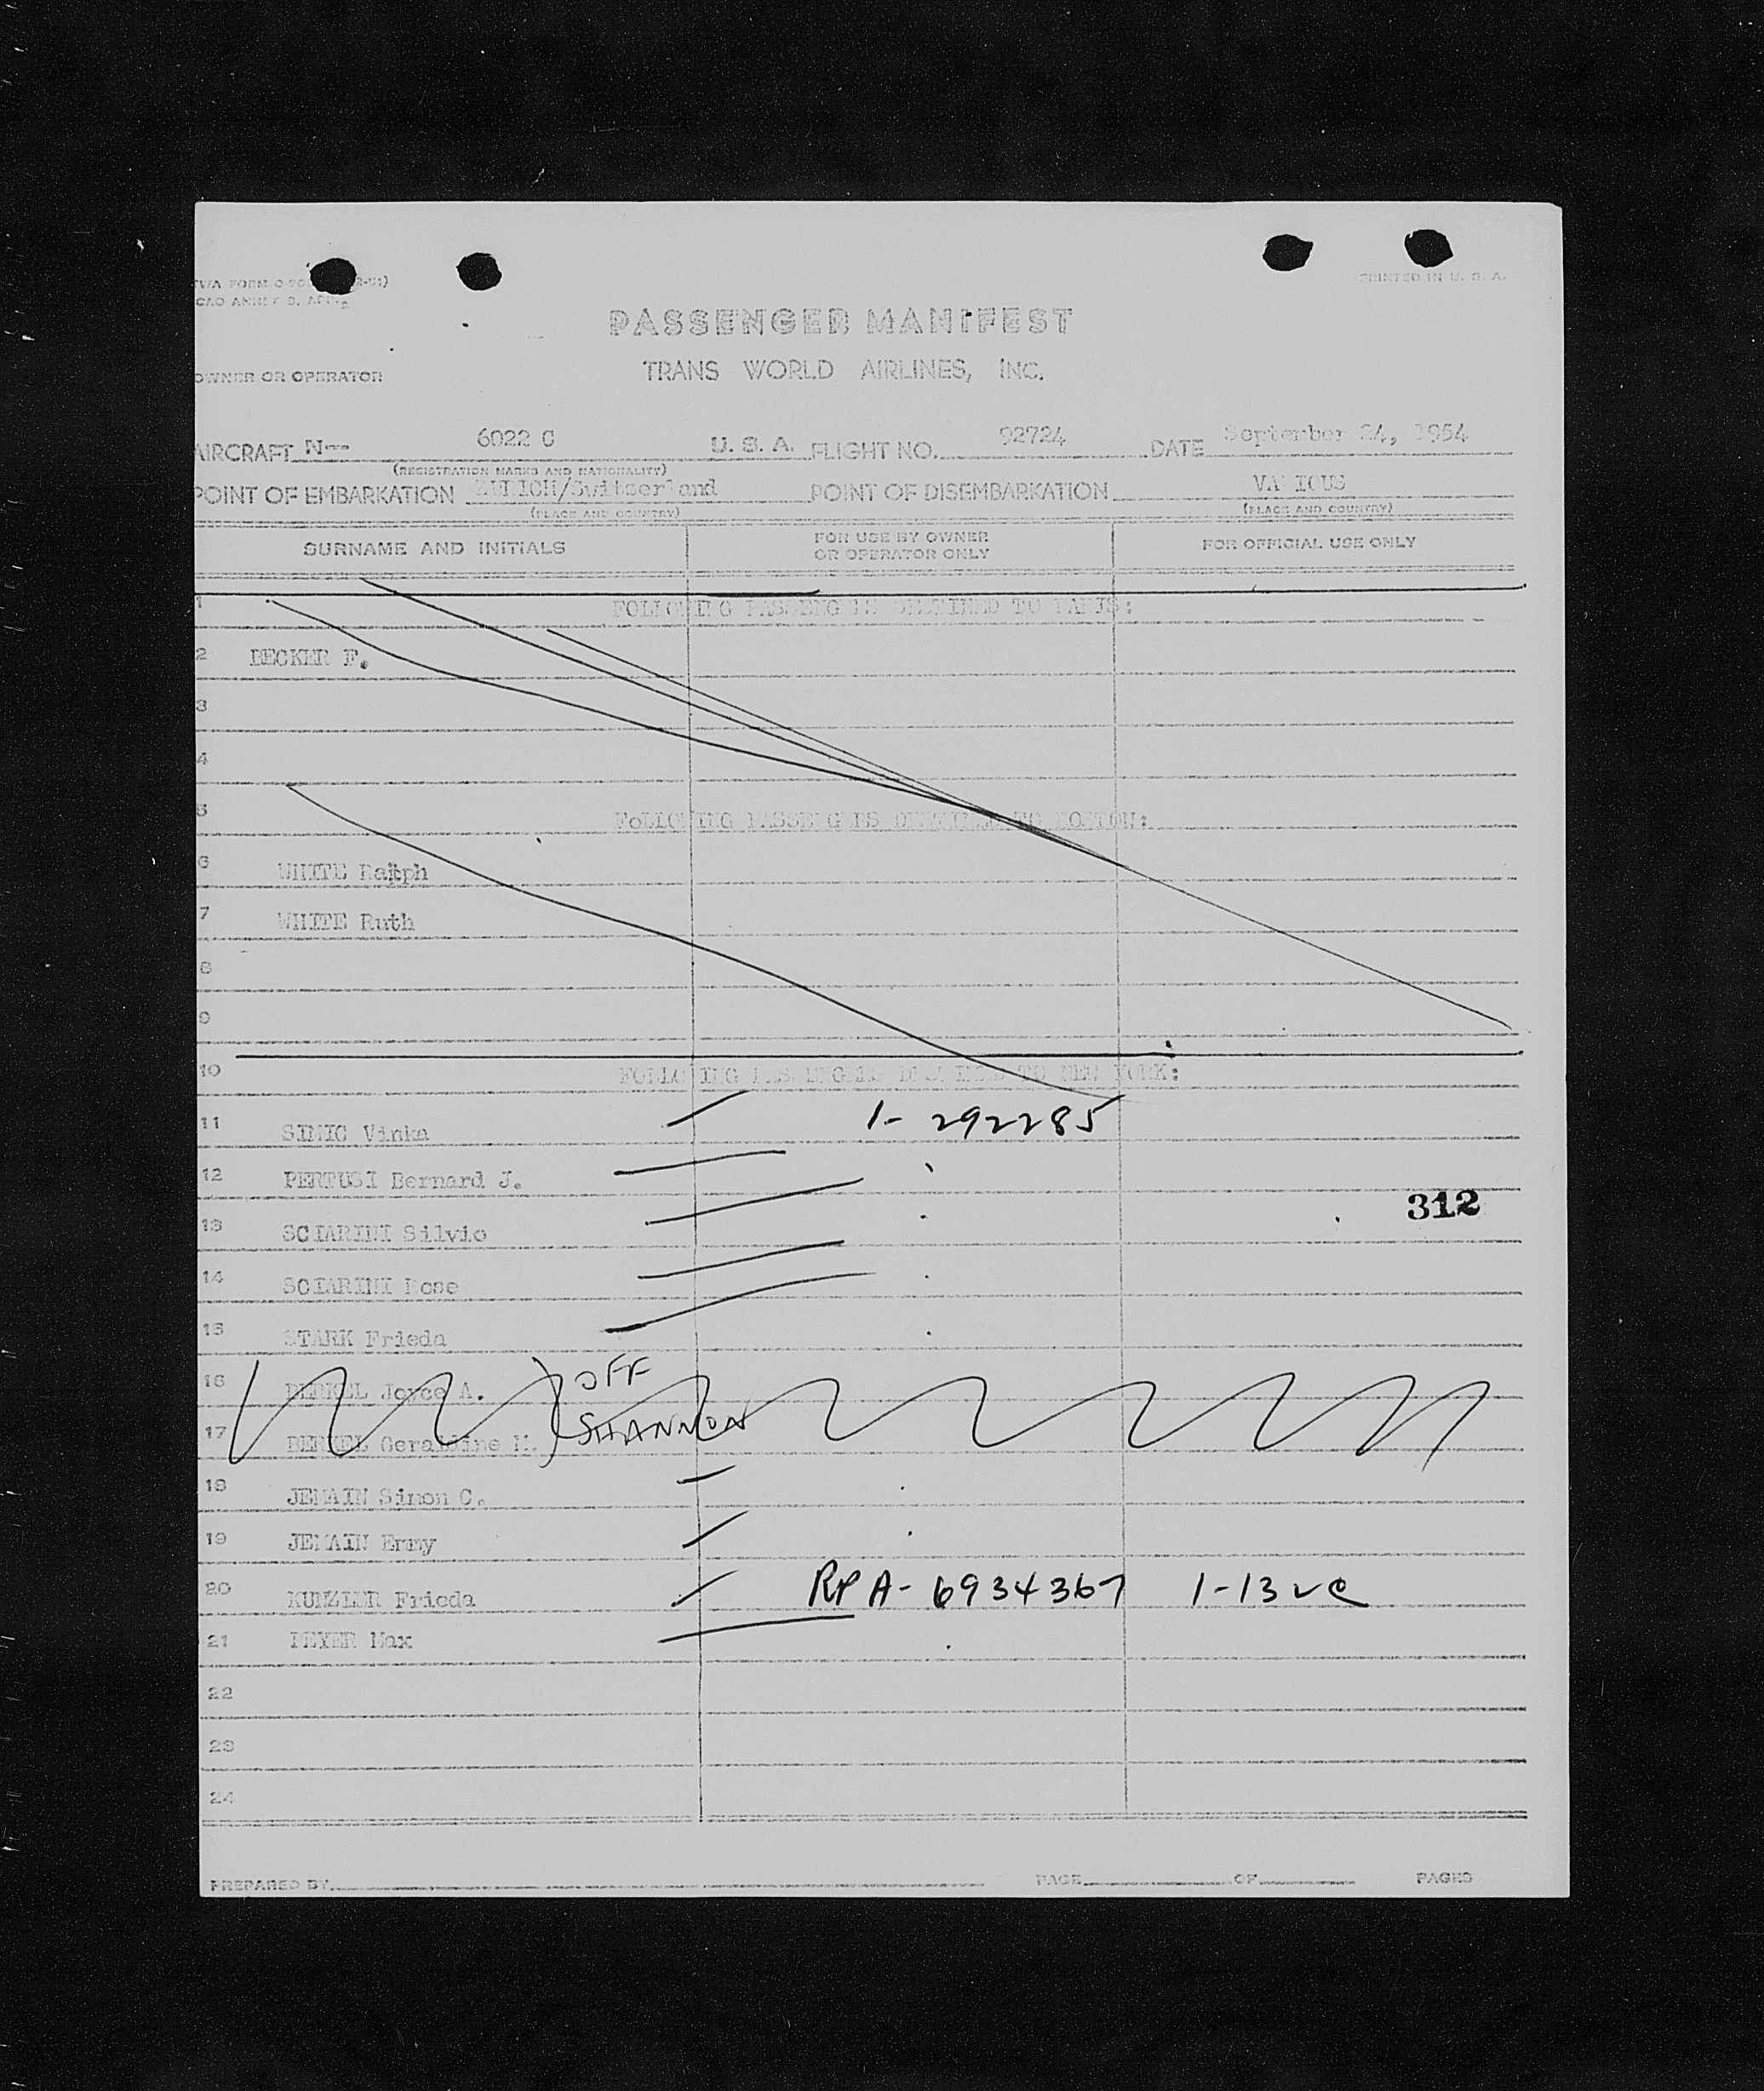 PRINTED IN U. S. A.
PASSENGER MANIFEST
OWNER OR OPERATOR
TRANS WORLD AIRLINES, INC.
AIRCRAFT N-- 6022 C U. S. A. FLIGHT NO. 92724 DATE September 24, 1954
(REGISTRATION MARKS AND NATIONALITY)
POINT OF EMBARKATION ZURICH/Switserland POINT OF DISEMBARKATION VARIOUS
(PLACE AND COUNTRY) (PLACE AND COUNTRY)
SURNAME AND INITIALS FOR USE BY OWNER OR OPERATOR ONLY FOR OFFICIAL USE ONLY
1 FOLLOWING PASSENGERS DESTINED TO PARIS:
2 BECKER F.
3
4
5 FoLLOWING PASSENGERS DESTINED TO
6 WHITE
7 WHITE Ruth
8
9
10 FOLLOWING PASSENGERS DESTINED TO NEW YORK:
11 SIMIC Vinka 1- 292285
12 PERTUSI Bernard J.
312
13 SCIARINI Silvio
14 SCIARINI Rose
15 STARK Frieda
16 BERKEL Joyce A. OFF
17 BERKEL Geraldine M. SHANNON
18 JEMAIN Simon C.
19 JEMAIN Emmy
20 KUNZLER Frieda RP A- 6934367 1-13
21 Max
22
23
24
PREPARED BY PAGE OF PAGES